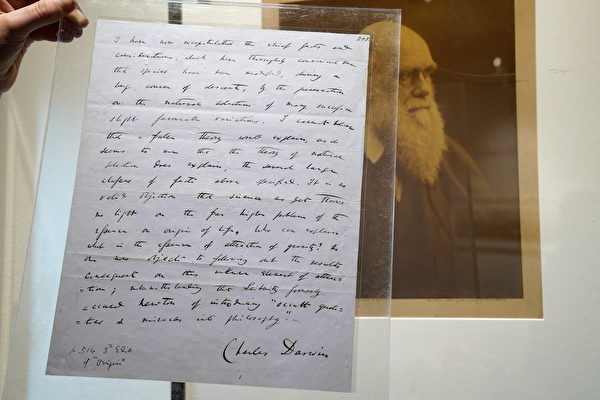 I have now recapitulated the chief facts and
considerations, which have thoroughly convinced me
that species have been modified, during a
long course of descent, by the preservation
or the natural selection of many successive
slight favourable variations. I cannot believe
that a false theory would explain, as it
seems to me that the theory of natural
selection does explain, the several large
classes of facts above specified. It is no
valid objection that science as yet throws
no light on the far higher problem of the
essence or origin of life. Who can explain
what is the essence of attraction of gravity? No
one now objects to following out the results
consequent on this unknown element of attrac-
-tion; notwithstanding that Leibnitz formerly
accused Newton of introducing "occult quali-
-ties & miracles into philosophy".
Charles Darwin
p 514 3d Edit
of "Origin"